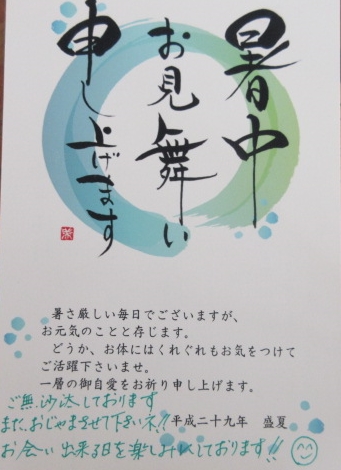 暑中
お見舞い
申し上げます
暑さ厳しい毎日でございますが、
お元気のことと存じます。
どうか、お体にはくれぐれもお気をつけて
ご活躍下さいませ。
一層の御自愛をお祈り申し上げます。
ご無沙汰しております
また、おじゃまさせて下さいネ!!
平成二十九年 盛夏
お会い出来る日を楽しみにしております!!